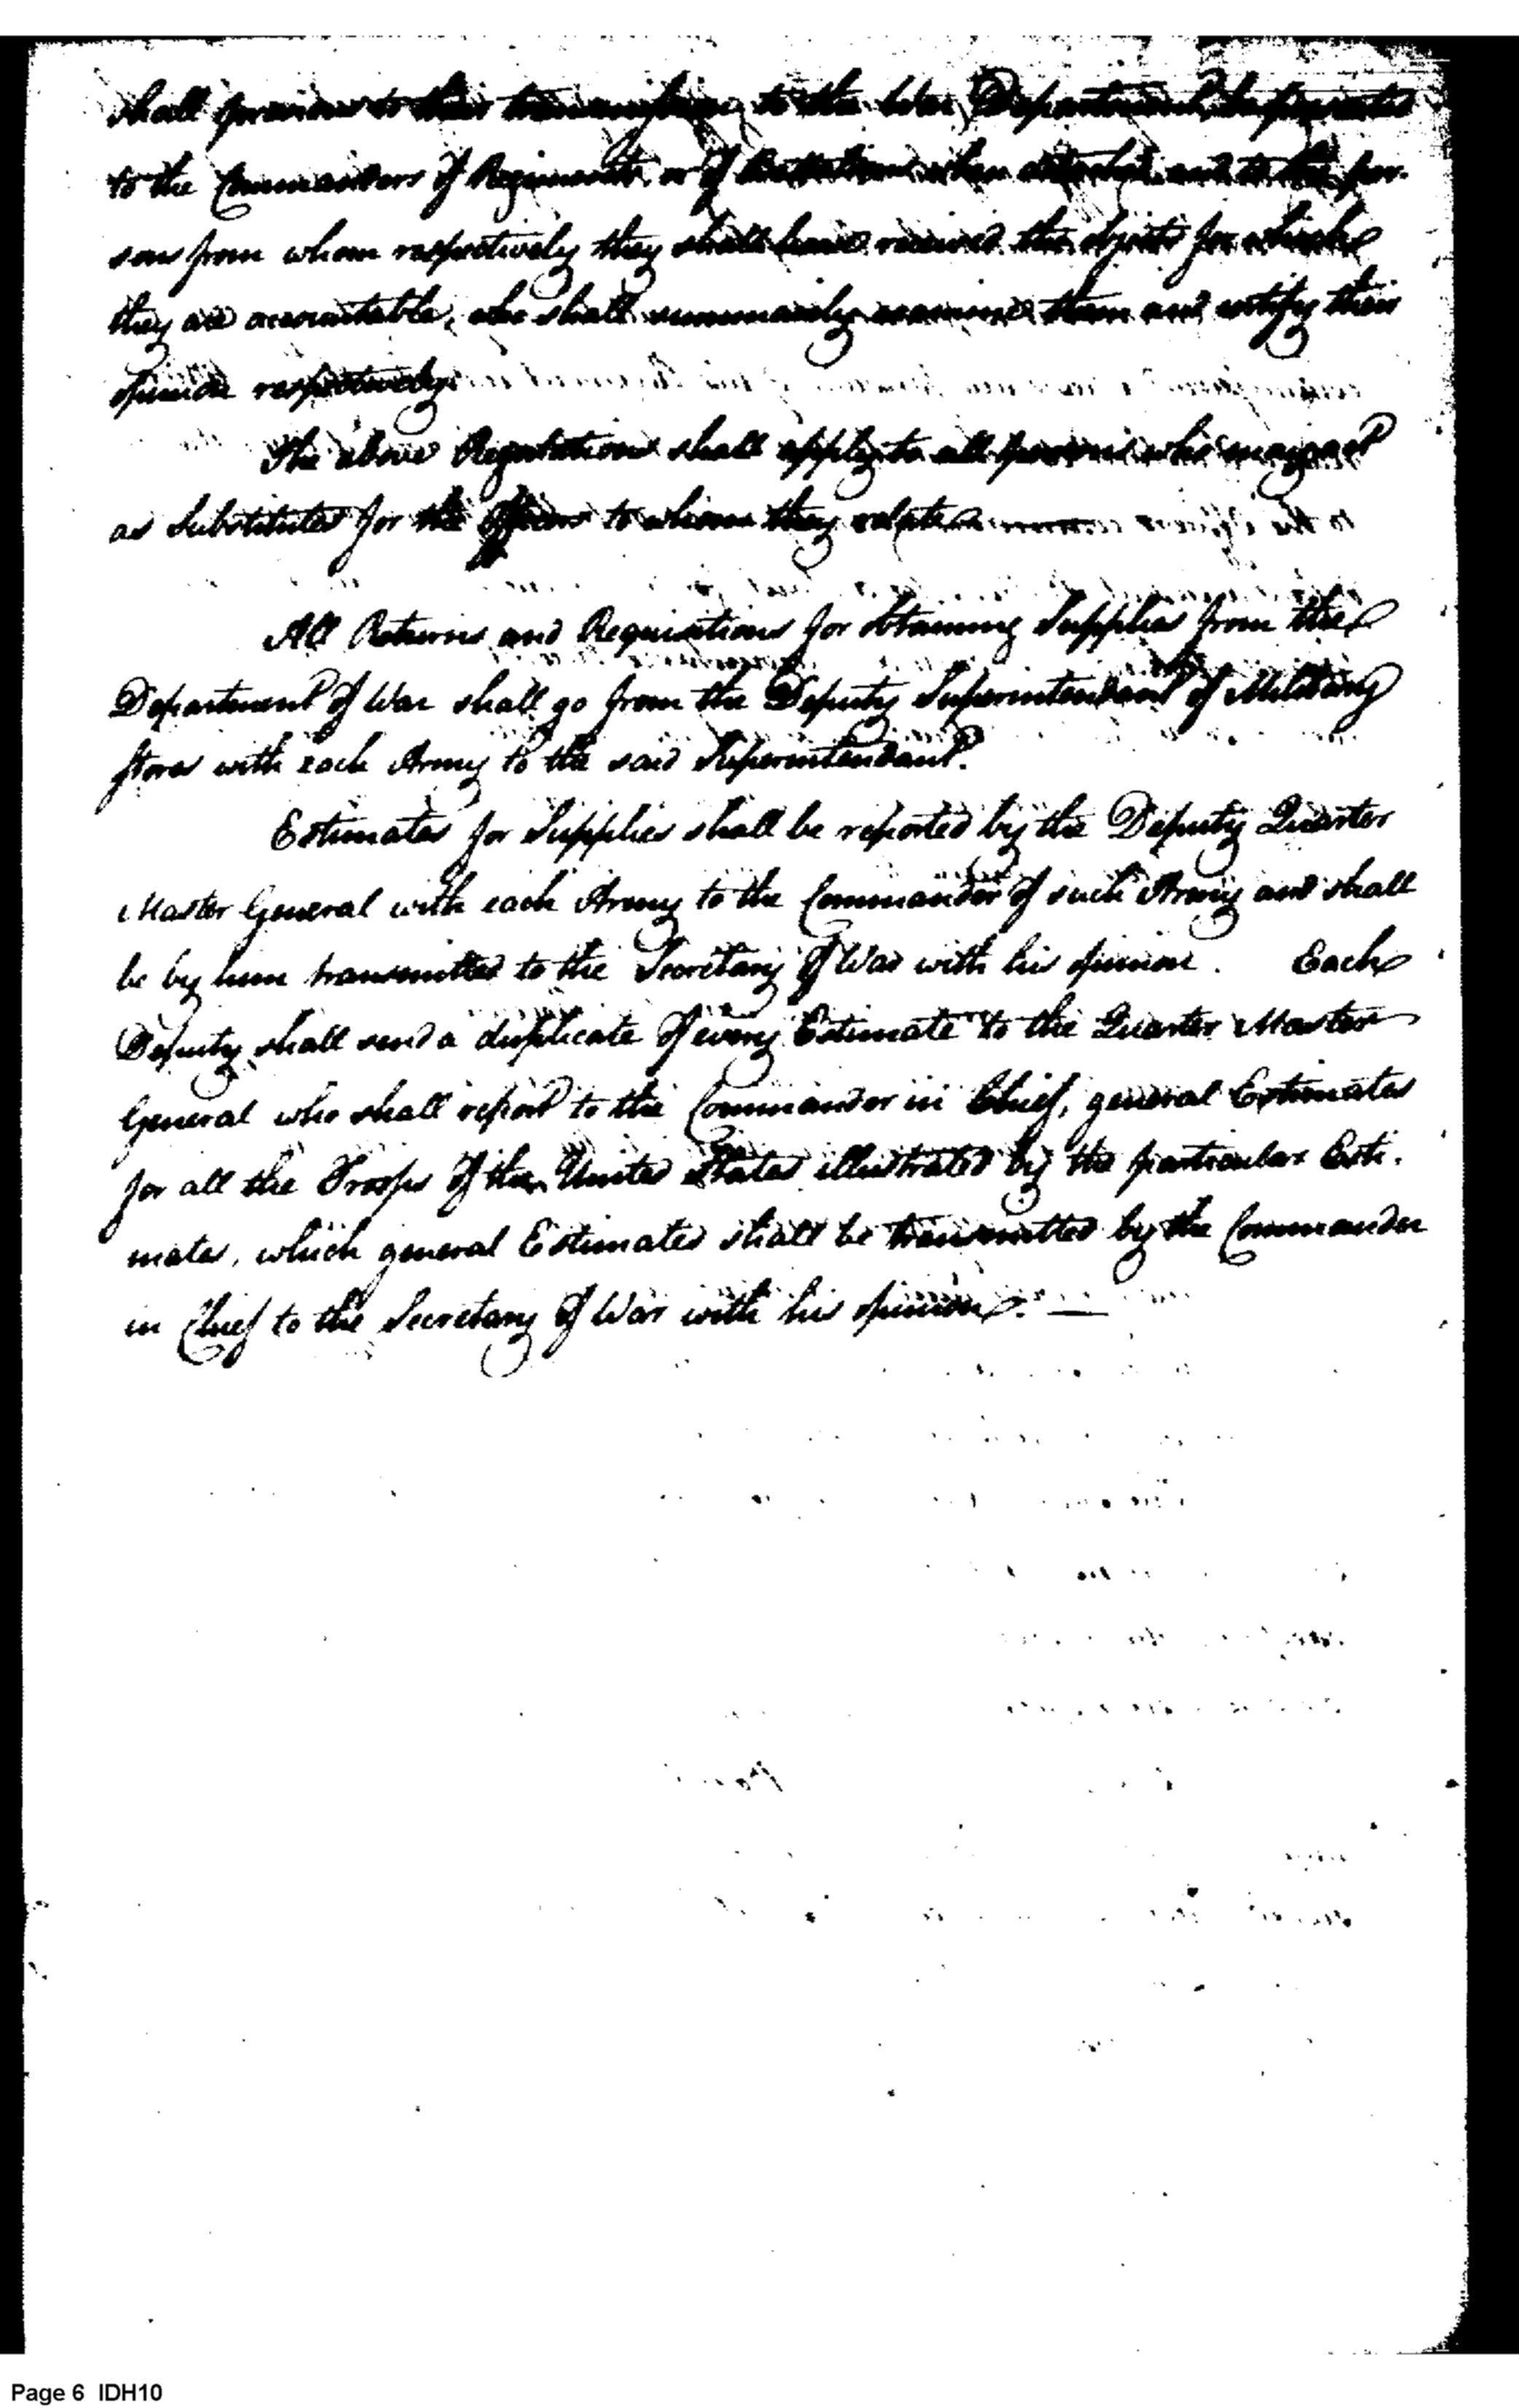 shall previous to their transmission to the War Department be presented
to the Commanders of Regiments or of Battalions when detached and to the per-
sons from whom respectively they shall have received the objects for which
they are accountable, who shall summarily examine them and certify their
opinion respectively.
The above Regulations shall apply to all persons who may act
as Substitutes for the Officers to whom they relate
All Returns and Requisitions for obtaining Supplies from the
Department of War shall go from the Deputy Superintendant of Military
stores with each Army to the said Superintendant.
Estimates for Supplies shall be reported by the Deputy Quarter
Master General with each Army to the Commander of such Army and shall
be by him transmitted to the Secretary of War with his opinion. Each
Deputy shall send a duplicate of every Estimate to the Quarter Master
General who shall report to the Commander in Chief, general Estimates
for all the Troops of the United States illustrated by the particular Esti-
mates, which general Estimates shall be transmitted by the Commander
in Chief to the Secretary of War with his opinion. —
Page 6 IDH10